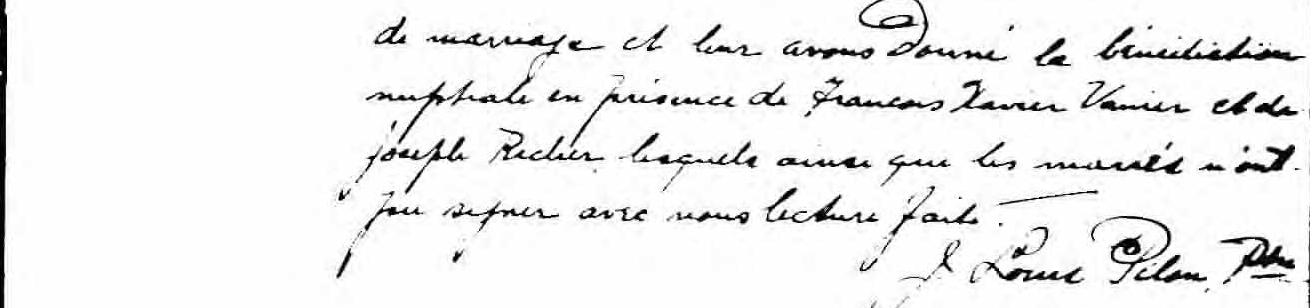 de mariage et leur avons Donné la bénédiction
nuptiale en présence de Francois Xavier Vanier et de
joseph Richer lesquels ainsi que les mariés n'ont
pu signer avec nous lecture faite.
J Louis Pilon, Ptre